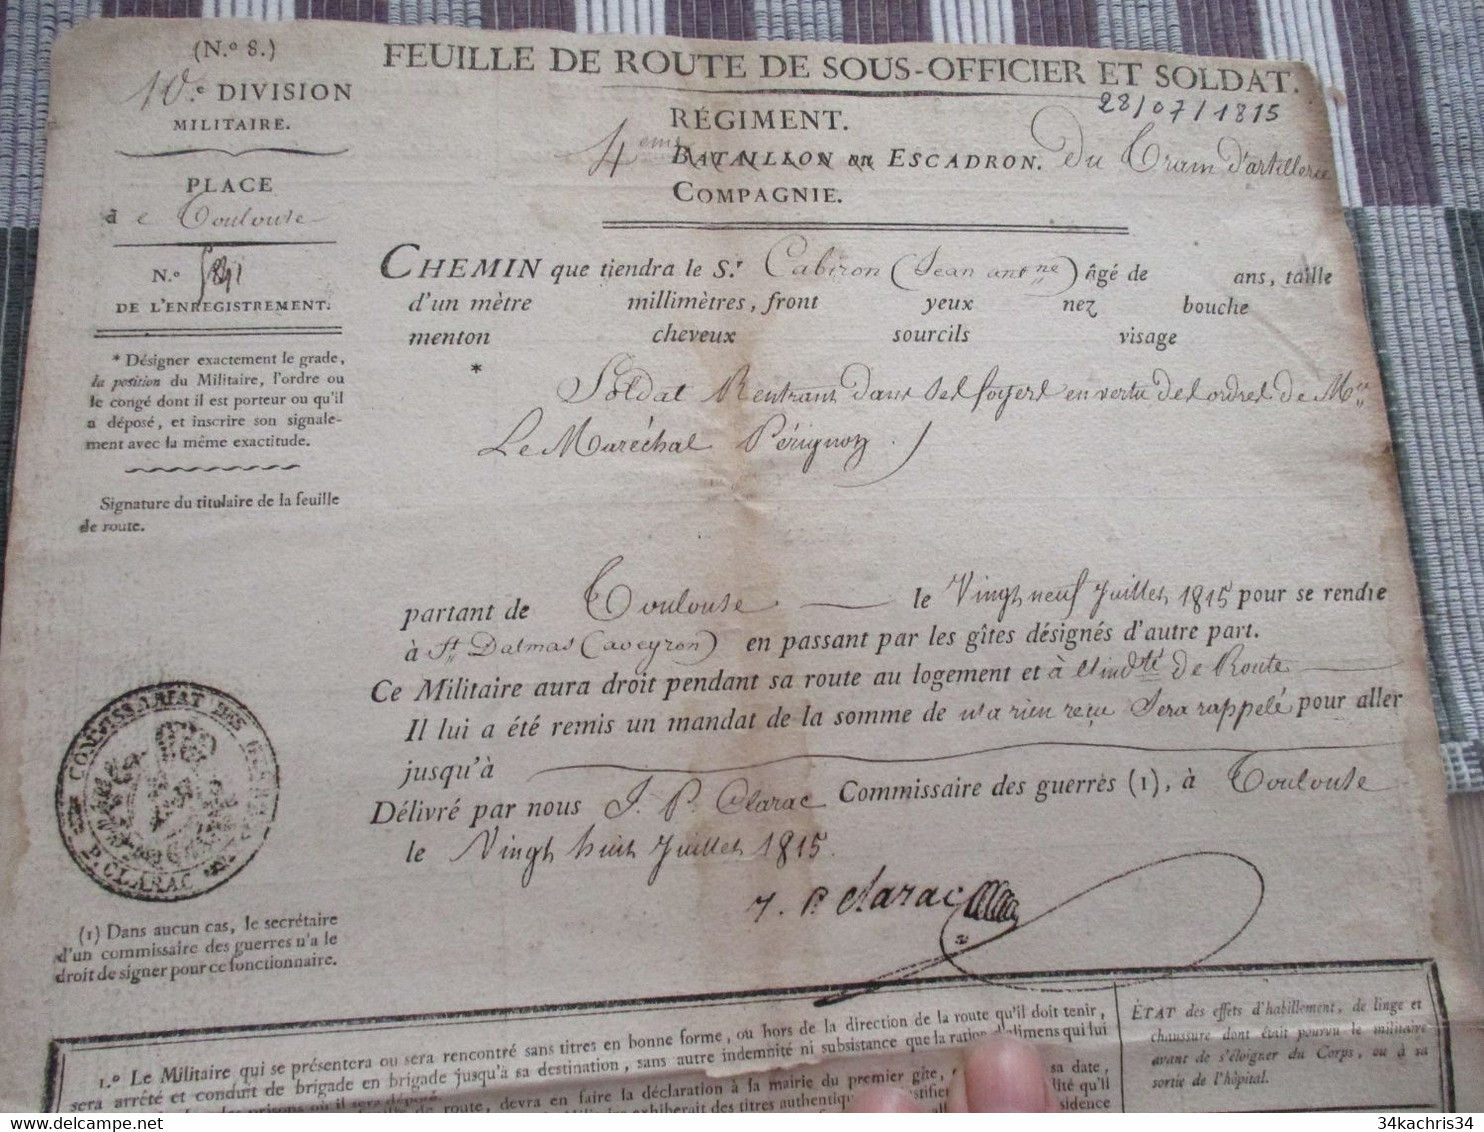 (N.º 8.)
10.e DIVISION
MILITAIRE.
PLACE
à e Toulouse
N.º
DE L'ENREGISTREMENT.
* Désigner exactement le grade,
la position du Militaire, l'ordre ou
le congé dont il est porteur ou qu'il
a déposé, et inscrire son signale-
ment avec la même exactitude.
Signature du titulaire de la feuille
de route.
FEUILLE DE ROUTE DE SOUS-OFFICIER ET SOLDAT.
28/07/1815
RÉGIMENT.
4eme BATAILLON ou ESCADRON. Du Train d'artillerie
COMPAGNIE.
CHEMIN que tiendra le S.r Cabiron (Jean ant ne) âgé de ans, taille
d'un mètre millimètres, front yeux nez bouche
menton cheveux sourcils visage
* Soldat Rentrant dans ses foyers en vertu des ordres de Mr
Le Maréchal Pérignon
partant de Toulouse le Vingt neuf Juillet 1815 pour se rendre
à St Dalmas (aveyron) en passant par les gîtes désignés d'autre part.
Ce Militaire aura droit pendant sa route au logement et à l'indté de Route
Il lui a été remis un mandat de la somme de n'a rien reçu sera rappelé pour aller
jusqu'à
Délivré par nous J. P. Clarac Commissaire des guerres (1), à Toulouse
le Vingt huit Juillet 1815.
J. P. Clarac
COMMISSARIAT DES GUERRES
P. CLARAC
(1) Dans aucun cas, le secrétaire
d'un commissaire des guerres n'a le
droit de signer pour ce fonctionnaire.
1.º Le Militaire qui se présentera ou sera rencontré sans titres en bonne forme, ou hors de la direction de la route qu'il doit tenir,
sera arrêté et conduit de brigade en brigade jusqu'à sa destination, sans autre indemnité ni subsistance que la ration d'alimens qui lui
de route, devra en faire la déclaration à la mairie du premier gîte, sa date,
exhiberait des titres authentiq
ÉTAT des effets d'habillement, de linge et
chaussure dont était pourvu le militaire
avant de s'éloigner du Corps, ou à sa
sortie de l'hôpital.
34kachris34